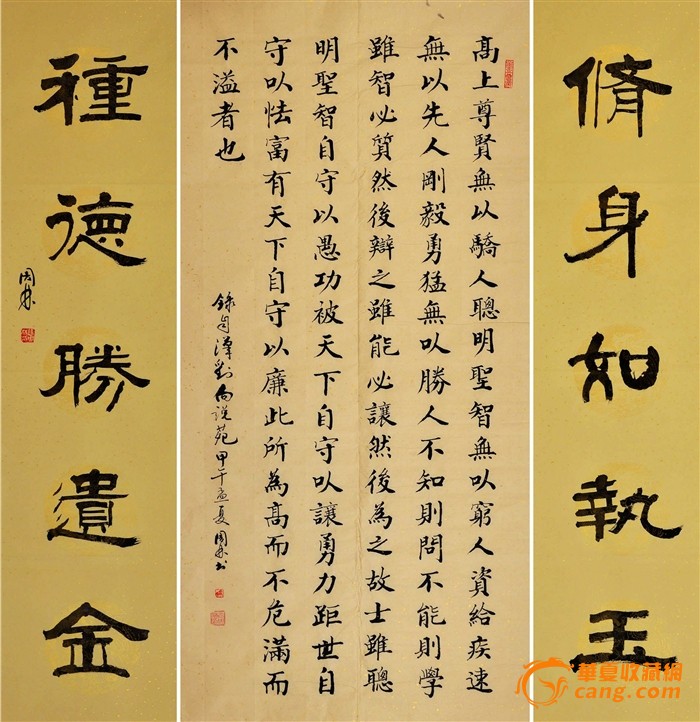 脩身如執玉
髙上尊賢無以驕人聰明聖智無以窮人資給疾速
無以先人剛毅勇猛無以勝人不知則問不能則學
雖智必質然後辯之雖能必讓然後為之故士雖聰
明聖智自守以愚功被天下自守以讓勇力距世自
守以怯富有天下自守以廉此所為髙而不危滿而
不溢者也
錄自漢劉向說苑甲午孟夏周书
種徳勝遺金
周
華夏收藏網
cang.com